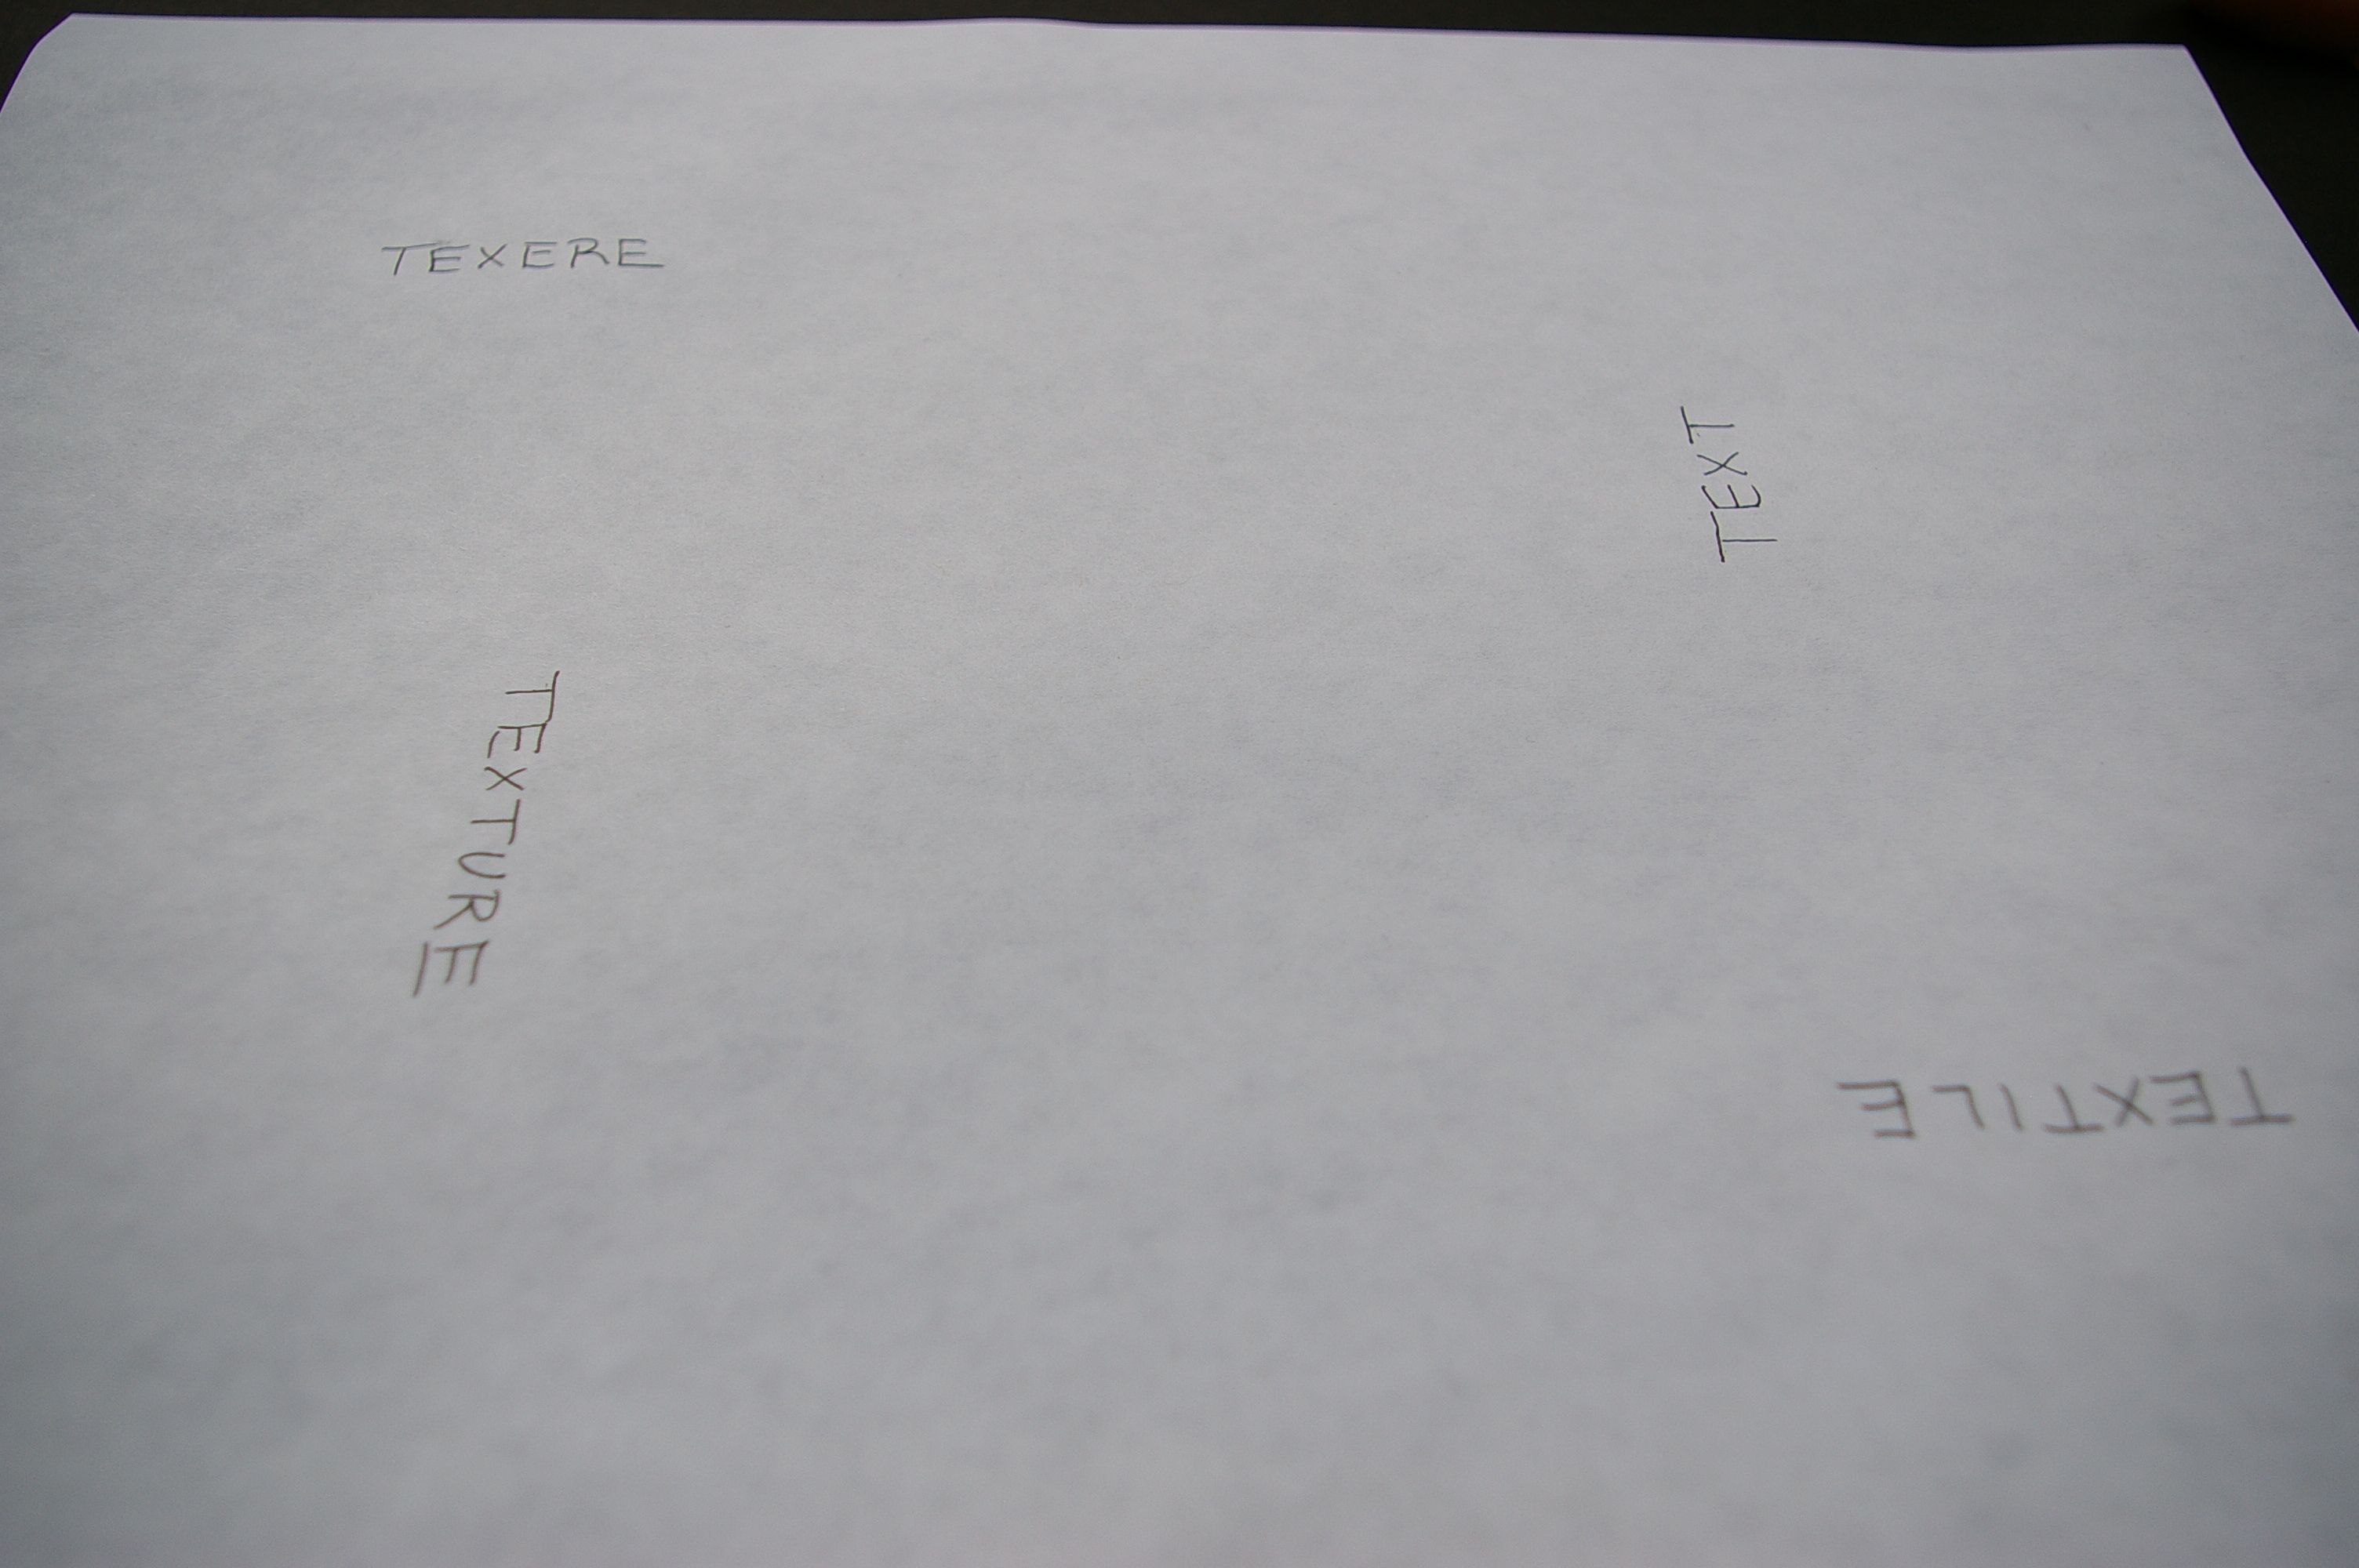 TEXERE
TEXT
TEXTURE
TEXTILE